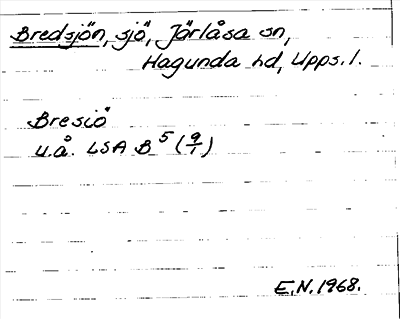 Bredsjön, sjö, Järlåsa sn,
Hagunda hd, Upps. l.
Bresiö
u.å. LSA B⁵ (9/1)
E.N. 1968.